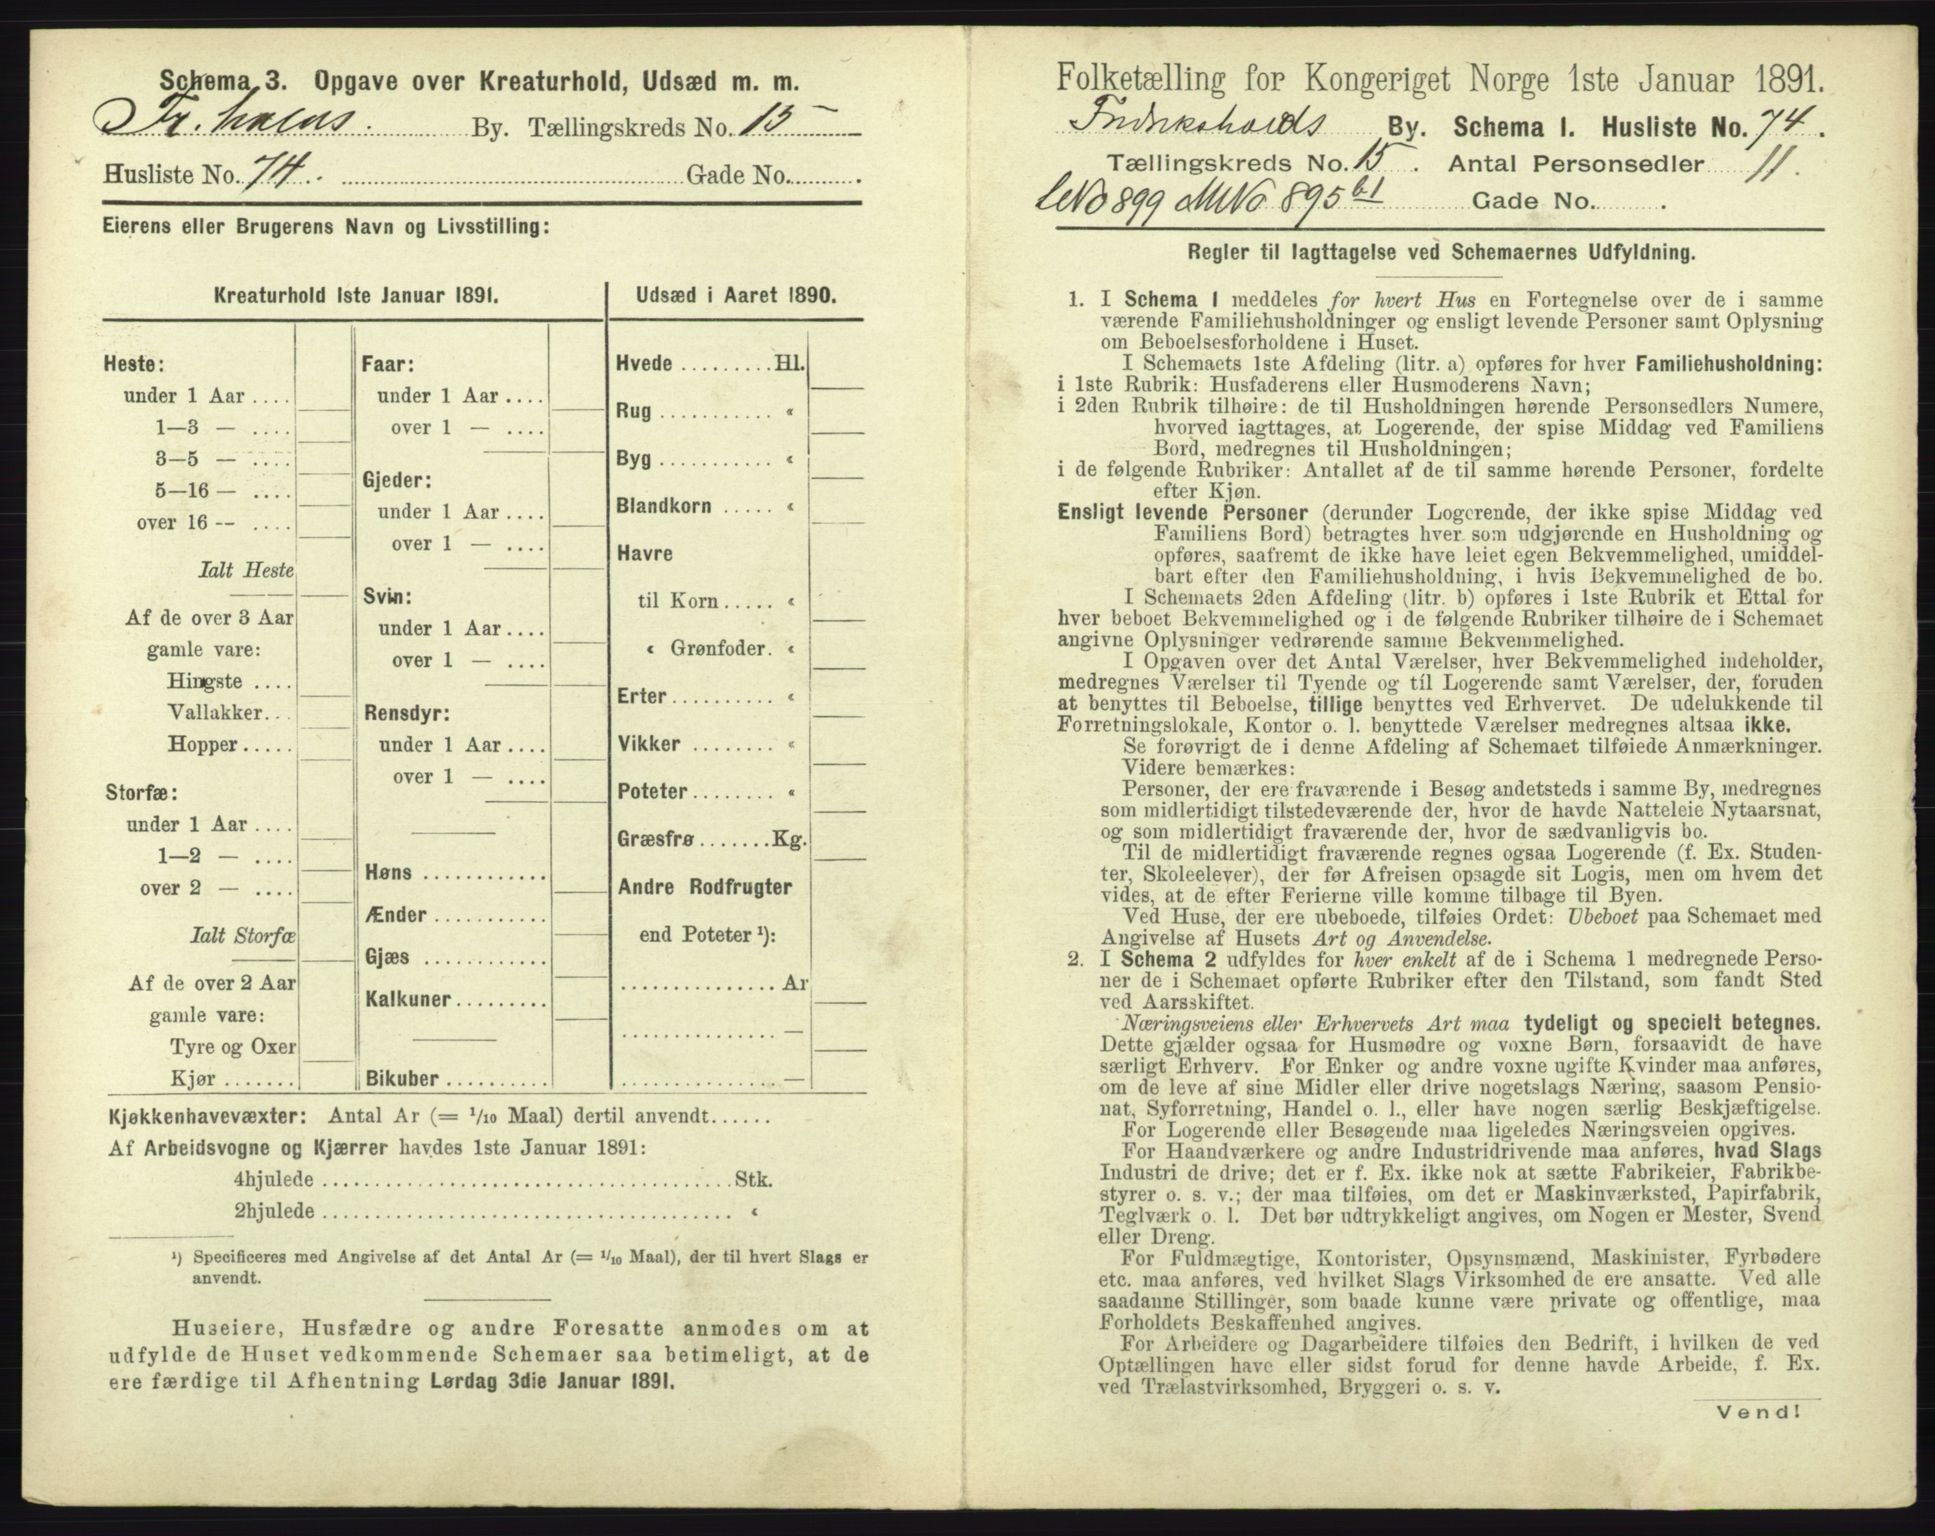 Schema 3. Opgave over Kreaturhold, Udsæd m. m.
Fr.halds. By. Tællingskreds No. 15
Husliste No. 74. Gade No. .
Eierens eller Brugerens Navn og Livsstilling:
Kreaturhold 1ste Januar 1891.
Heste:
under 1 Aar ....
1—3 — ....
3—5 — ....
5—16 — ....
over 16 -- ....
Ialt Heste
Af de over 3 Aar
gamle vare:
Hingste ....
Vallakker...
Hopper.....
Storfæ:
under 1 Aar ....
1—2 — ....
over 2 — ....
Ialt Storfæ
Af de over 2 Aar
gamle vare:
Tyre og Oxer
Kjør .......
Faar:
under 1 Aar ....
over 1 — ....
Gjeder:
under 1 Aar ....
over 1 — ....
Svin:
under 1 Aar ....
over 1 — ....
Rensdyr:
under 1 Aar ....
over 1 — ....
Høns ............
Ænder ...........
Gjæs ............
Kalkuner.........
Bikuber ..........
Udsæd i Aaret 1890.
Hvede .........Hl.
Rug ........... «
Byg ........... «
Blandkorn ..... «
Havre
til Korn ..... «
« Grønfoder. «
Erter .......... «
Vikker ........ «
Poteter ........ «
Græsfrø .......Kg.
Andre Rodfrugter
end Poteter ¹):
............... Ar
............... —
............... —
Kjøkkenhavevæxter: Antal Ar (= 1/10 Maal) dertil anvendt......
Af Arbeidsvogne og Kjærrer havdes 1ste Januar 1891:
4hjulede .....................................Stk.
2hjulede ..................................... «
¹) Specificeres med Angivelse af det Antal Ar (= 1/10 Maal), der til hvert Slags er
anvendt.
Huseiere, Husfædre og andre Foresatte anmodes om at
udfylde de Huset vedkommende Schemaer saa betimeligt, at de
ere færdige til Afhentning Lørdag 3die Januar 1891.
Folketælling for Kongeriget Norge 1ste Januar 1891.
Fredrikshalds By. Schema 1. Husliste No. 74.
Tællingskreds No. 15. Antal Personsedler 11.
LNo 899 MNo 895 b1 Gade No. .
Regler til Iagttagelse ved Schemaernes Udfyldning.
1. I Schema 1 meddeles for hvert Hus en Fortegnelse over de i samme
værende Familiehusholdninger og ensligt levende Personer samt Oplysning
om Beboelsesforholdene i Huset.
I Schemaets 1ste Afdeling (litr. a) opføres for hver Familiehusholdning:
i 1ste Rubrik: Husfaderens eller Husmoderens Navn;
i 2den Rubrik tilhøire: de til Husholdningen hørende Personsedlers Numere,
hvorved iagttages, at Logerende, der spise Middag ved Familiens
Bord, medregnes til Husholdningen;
i de følgende Rubriker: Antallet af de til samme hørende Personer, fordelte
efter Kjøn.
Ensligt levende Personer (derunder Logerende, der ikke spise Middag ved
Familiens Bord) betragtes hver som udgjørende en Husholdning og
opføres, saafremt de ikke have leiet egen Bekvemmelighed, umiddel-
bart efter den Familiehusholdning, i hvis Bekvemmelighed de bo.
I Schemaets 2den Afdeling (litr. b) opføres i 1ste Rubrik et Ettal for
hver beboet Bekvemmelighed og i de følgende Rubriker tilhøire de i Schemaet
angivne Oplysninger vedrørende samme Bekvemmelighed.
I Opgaven over det Antal Værelser, hver Bekvemmelighed indeholder,
medregnes Værelser til Tyende og til Logerende samt Værelser, der, foruden
at benyttes til Beboelse, tillige benyttes ved Erhvervet. De udelukkende til
Forretningslokale, Kontor o. l. benyttede Værelser medregnes altsaa ikke.
Se forøvrigt de i denne Afdeling af Schemaet tilføiede Anmærkninger.
Videre bemærkes:
Personer, der ere fraværende i Besøg andetsteds i samme By, medregnes
som midlertidigt tilstedeværende der, hvor de havde Natteleie Nytaarsnat,
og som midlertidigt fraværende der, hvor de sædvanligvis bo.
Til de midlertidigt fraværende regnes ogsaa Logerende (f. Ex. Studen-
ter, Skoleelever), der før Afreisen opsagde sit Logis, men om hvem det
vides, at de efter Ferierne ville komme tilbage til Byen.
Ved Huse, der ere ubeboede, tilføies Ordet: Ubeboet paa Schemaet med
Angivelse af Husets Art og Anvendelse.
2. I Schema 2 udfyldes for hver enkelt af de i Schema 1 medregnede Perso-
ner de i Schemaet opførte Rubriker efter den Tilstand, som fandt Sted
ved Aarsskiftet.
Næringsveiens eller Erhvervets Art maa tydeligt og specielt betegnes.
Dette gjælder ogsaa for Husmødre og voxne Børn, forsaavidt de have
særligt Erhverv. For Enker og andre voxne ugifte Kvinder maa anføres,
om de leve af sine Midler eller drive nogetslags Næring, saasom Pensio-
nat, Syforretning, Handel o. l., eller have nogen særlig Beskjæftigelse.
For Logerende eller Besøgende maa ligeledes Næringsveien opgives.
For Haandværkere og andre Industridrivende maa anføres, hvad Slags
Industri de drive; det er f. Ex. ikke nok at sætte Fabrikeier, Fabrikbe-
styrer o. s. v.; der maa tilføies, om det er Maskinværksted, Papirfabrik,
Teglværk o. l. Det bør udtrykkeligt angives, om Nogen er Mester, Svend
eller Dreng.
For Fuldmægtige, Kontorister, Opsynsmænd, Maskinister, Fyrbødere
etc. maa anføres, ved hvilket Slags Virksomhed de ere ansatte. Ved alle
saadanne Stillinger, som baade kunne være private og offentlige, maa
Forholdets Beskaffenhed angives.
For Arbeidere og Dagarbeidere tilføies den Bedrift, i hvilken de ved
Optællingen have eller sidst forud for denne havde Arbeide, f. Ex.
ved Trælastvirksomhed, Bryggeri o. s. v.
Vend!